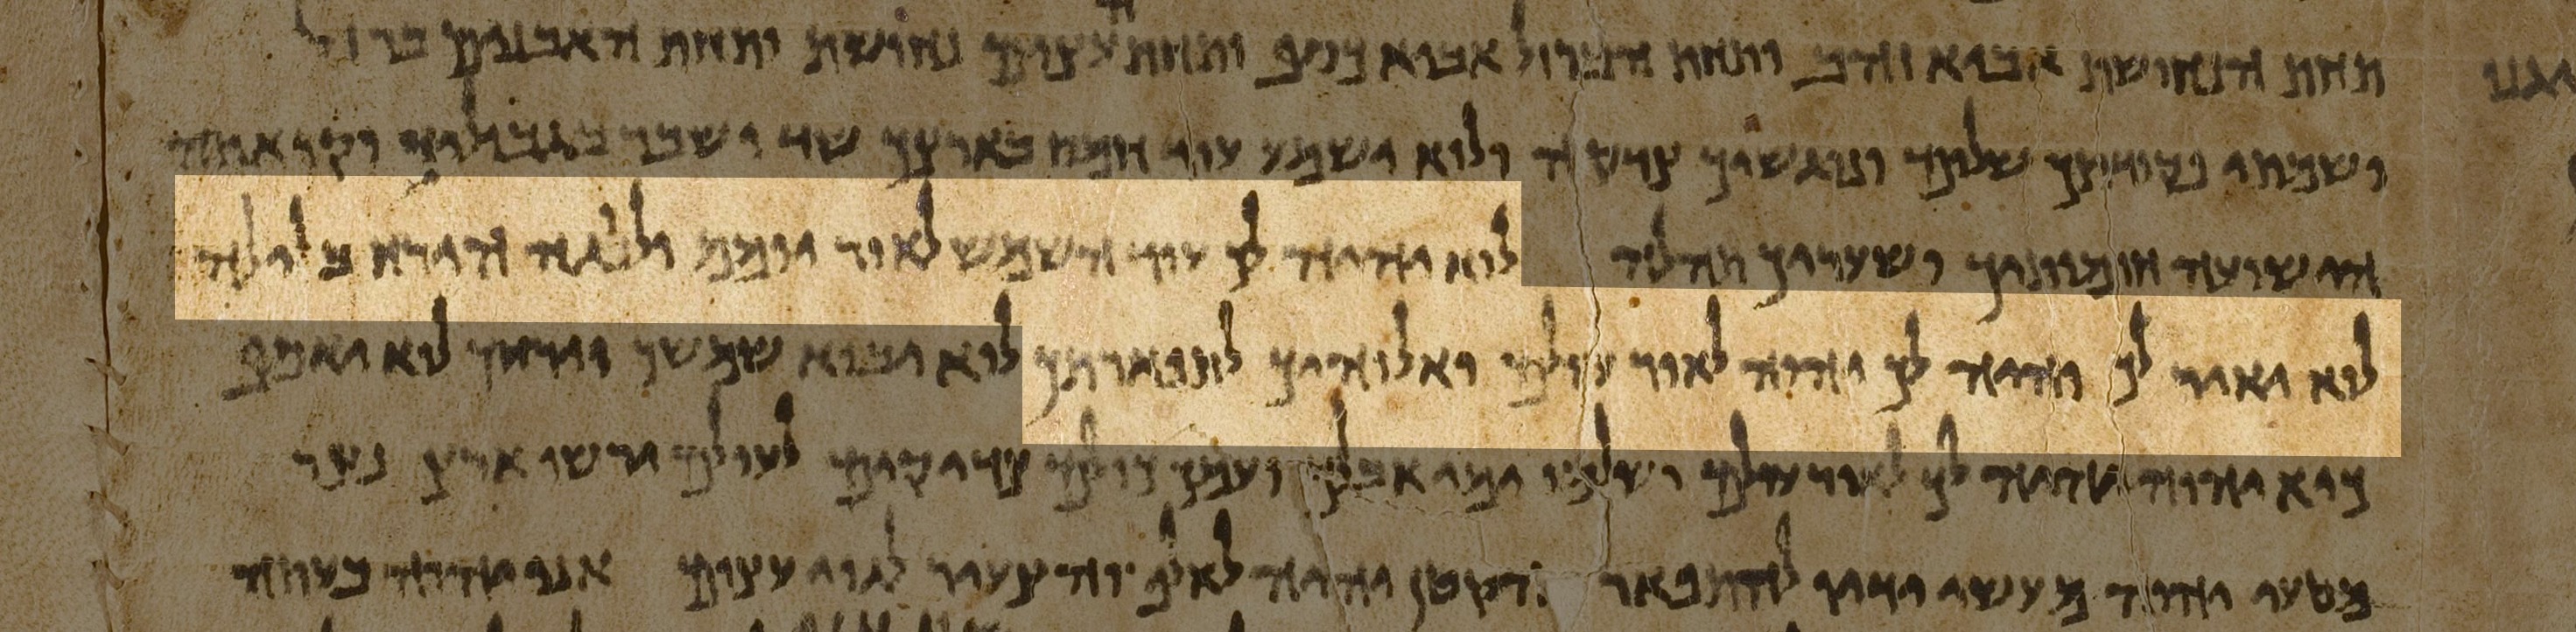 תחת הנחושת אביא זהב ותחת הברזל אביא כסף ותחת עצים נחושת ותחת האבנים ברזל
ושמתי פקודתך שלום ונוגשיך צדקה ולוא ישמע עוד חמס בארצך שוד ושבר בגבוליך וקראתי
ישועה חומותיך ושעריך תהלה לוא יהיה לך עוד השמש לאור יומם ולנגה הירח בלילה
לוא יאיר לך והיה לך יהוה לאור עולם ואלוהיך לתפארתך לוא יבוא שמשך וירחך לוא יאסף
כיא יהוה יהיה לך לאור עולם ושלמו ימי אבלך ועמך כולם צדיקים לעולם ירשו ארץ נצר
מטעי יהוה מעשי ידיו להתפאר הקטן יהיה לאלף והצעיר לגוי עצום אני יהוה בעתה